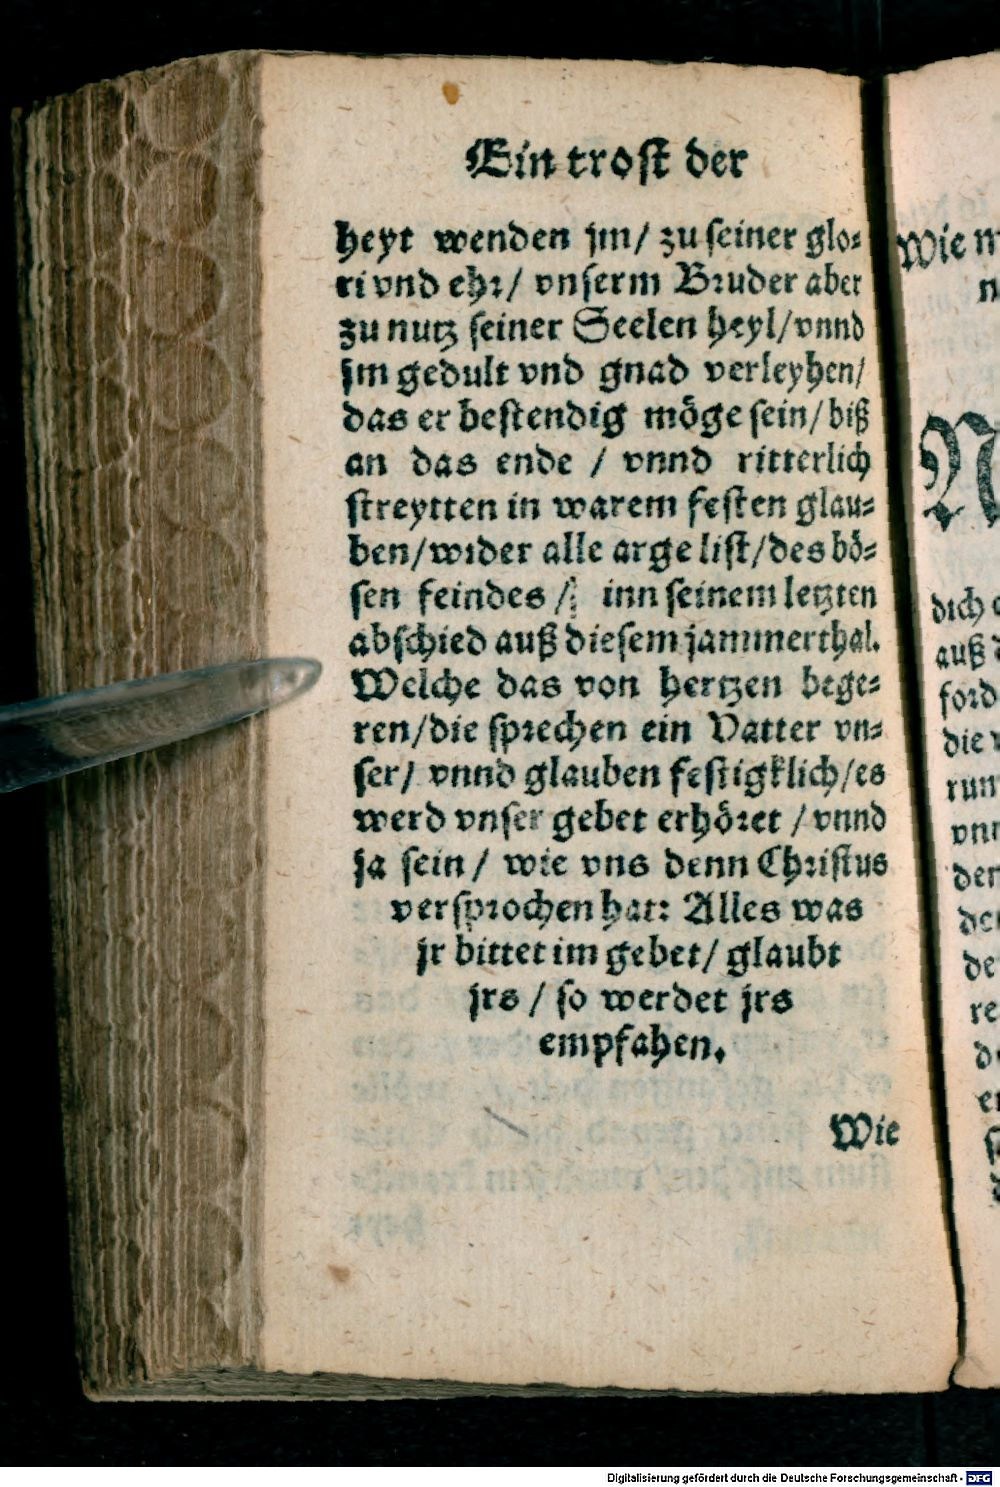 Ein trost der
heyt wenden jm/ zu seiner glo⸗
ri vnd ehr/ vnserm Bruder aber
zu nutz seiner Seelen heyl/ vnnd
jm gedult vnd gnad verleyhen/
das er bestendig möge sein/ biß
an das ende / vnnd ritterlich
streytten in warem festen glau⸗
ben/ wider alle arge list/ des bö⸗
sen feindes / inn seinem letzten
abschied auß diesem jammerthal.
Welche das von hertzen bege⸗
ren/ die sprechen ein Vatter vn⸗
ser/ vnnd glauben festigklich/ es
werd vnser gebet erhöret / vnnd
ja sein/ wie vns denn Christus
versprochen hat: Alles was
jr bittet im gebet/ glaubt
jrs / so werdet jrs
empfahen.
Wie
Wie
dich
auß
ford
die
Digitalisierung gefördert durch die Deutsche Forschungsgemeinschaft - DFG